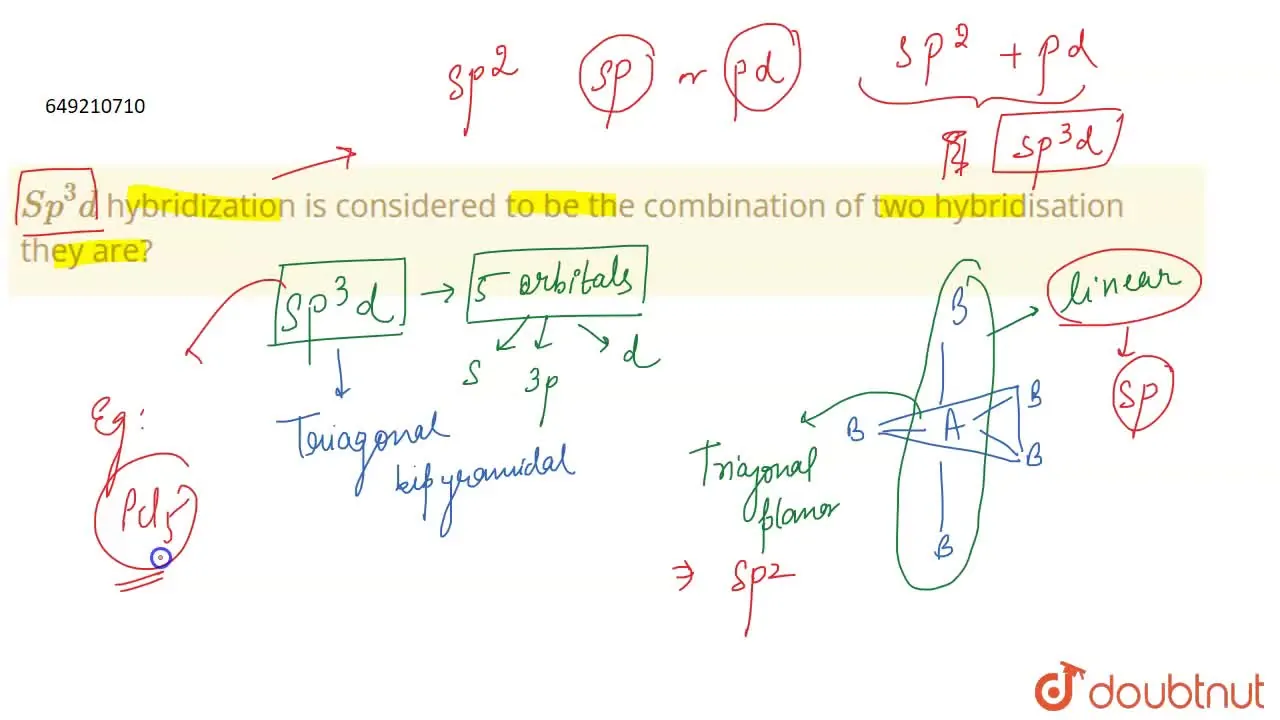 sp2 sp or pd sp2 + pd
649210710
sp3d
Sp3d hybridization is considered to be the combination of two hybridisation
they are?
sp3d → 5 orbitals
s 3p d
Eg:
PCl5
Teriagonal
bipyramidal
B
B A B
B
B
linear
sp
Triagonal
planar
⇒ sp2
doubtnut